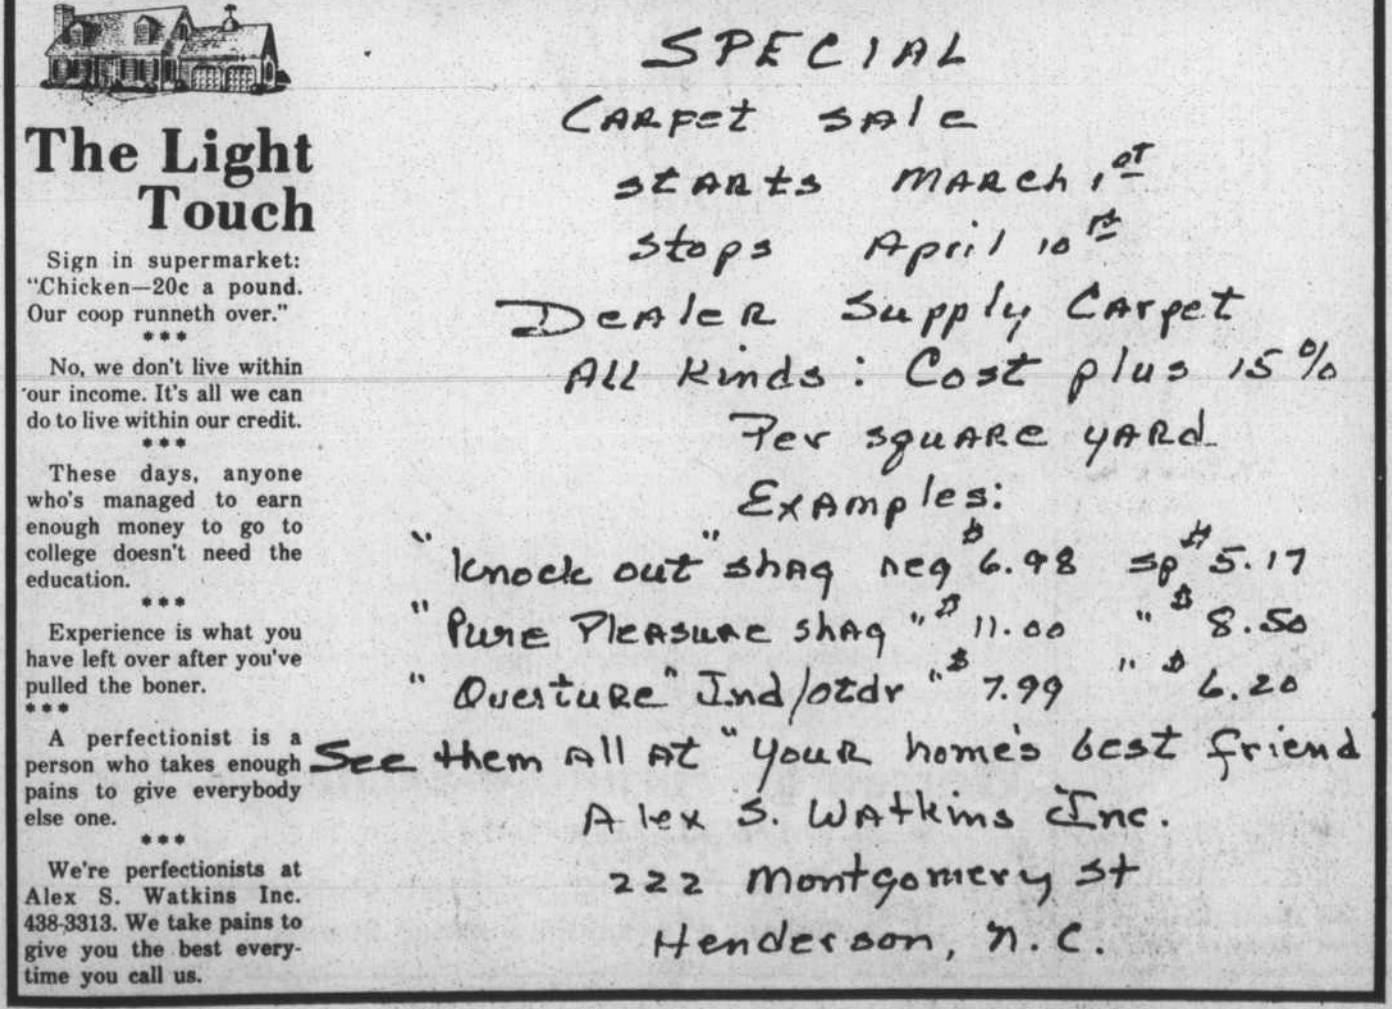 The Light
Touch
Sign in supermarket:
"Chicken—20c a pound.
Our coop runneth over."
***
No, we don't live within
our income. It's all we can
do to live within our credit.
***
These days, anyone
who's managed to earn
enough money to go to
college doesn't need the
education.
***
Experience is what you
have left over after you've
pulled the boner.
***
A perfectionist is a
person who takes enough
pains to give everybody
else one.
***
We're perfectionists at
Alex S. Watkins Inc.
438-3313. We take pains to
give you the best every-
time you call us.
SPECIAL
CARPET SALE
STARTS MARCH 1st
Stops April 10
DEALER Supply CARpet
All Kinds: Cost plus 15%
Per square YARD
Examples:
"Knock out" shag reg $6.98 sp $5.17
"Pure Pleasure shag " $11.00 " $8.50
"Overture" Ind/otdr " $7.99 " $6.20
See them All At "your home's best friend
Alex S. Watkins Inc.
222 Montgomery St
Henderson, N.C.